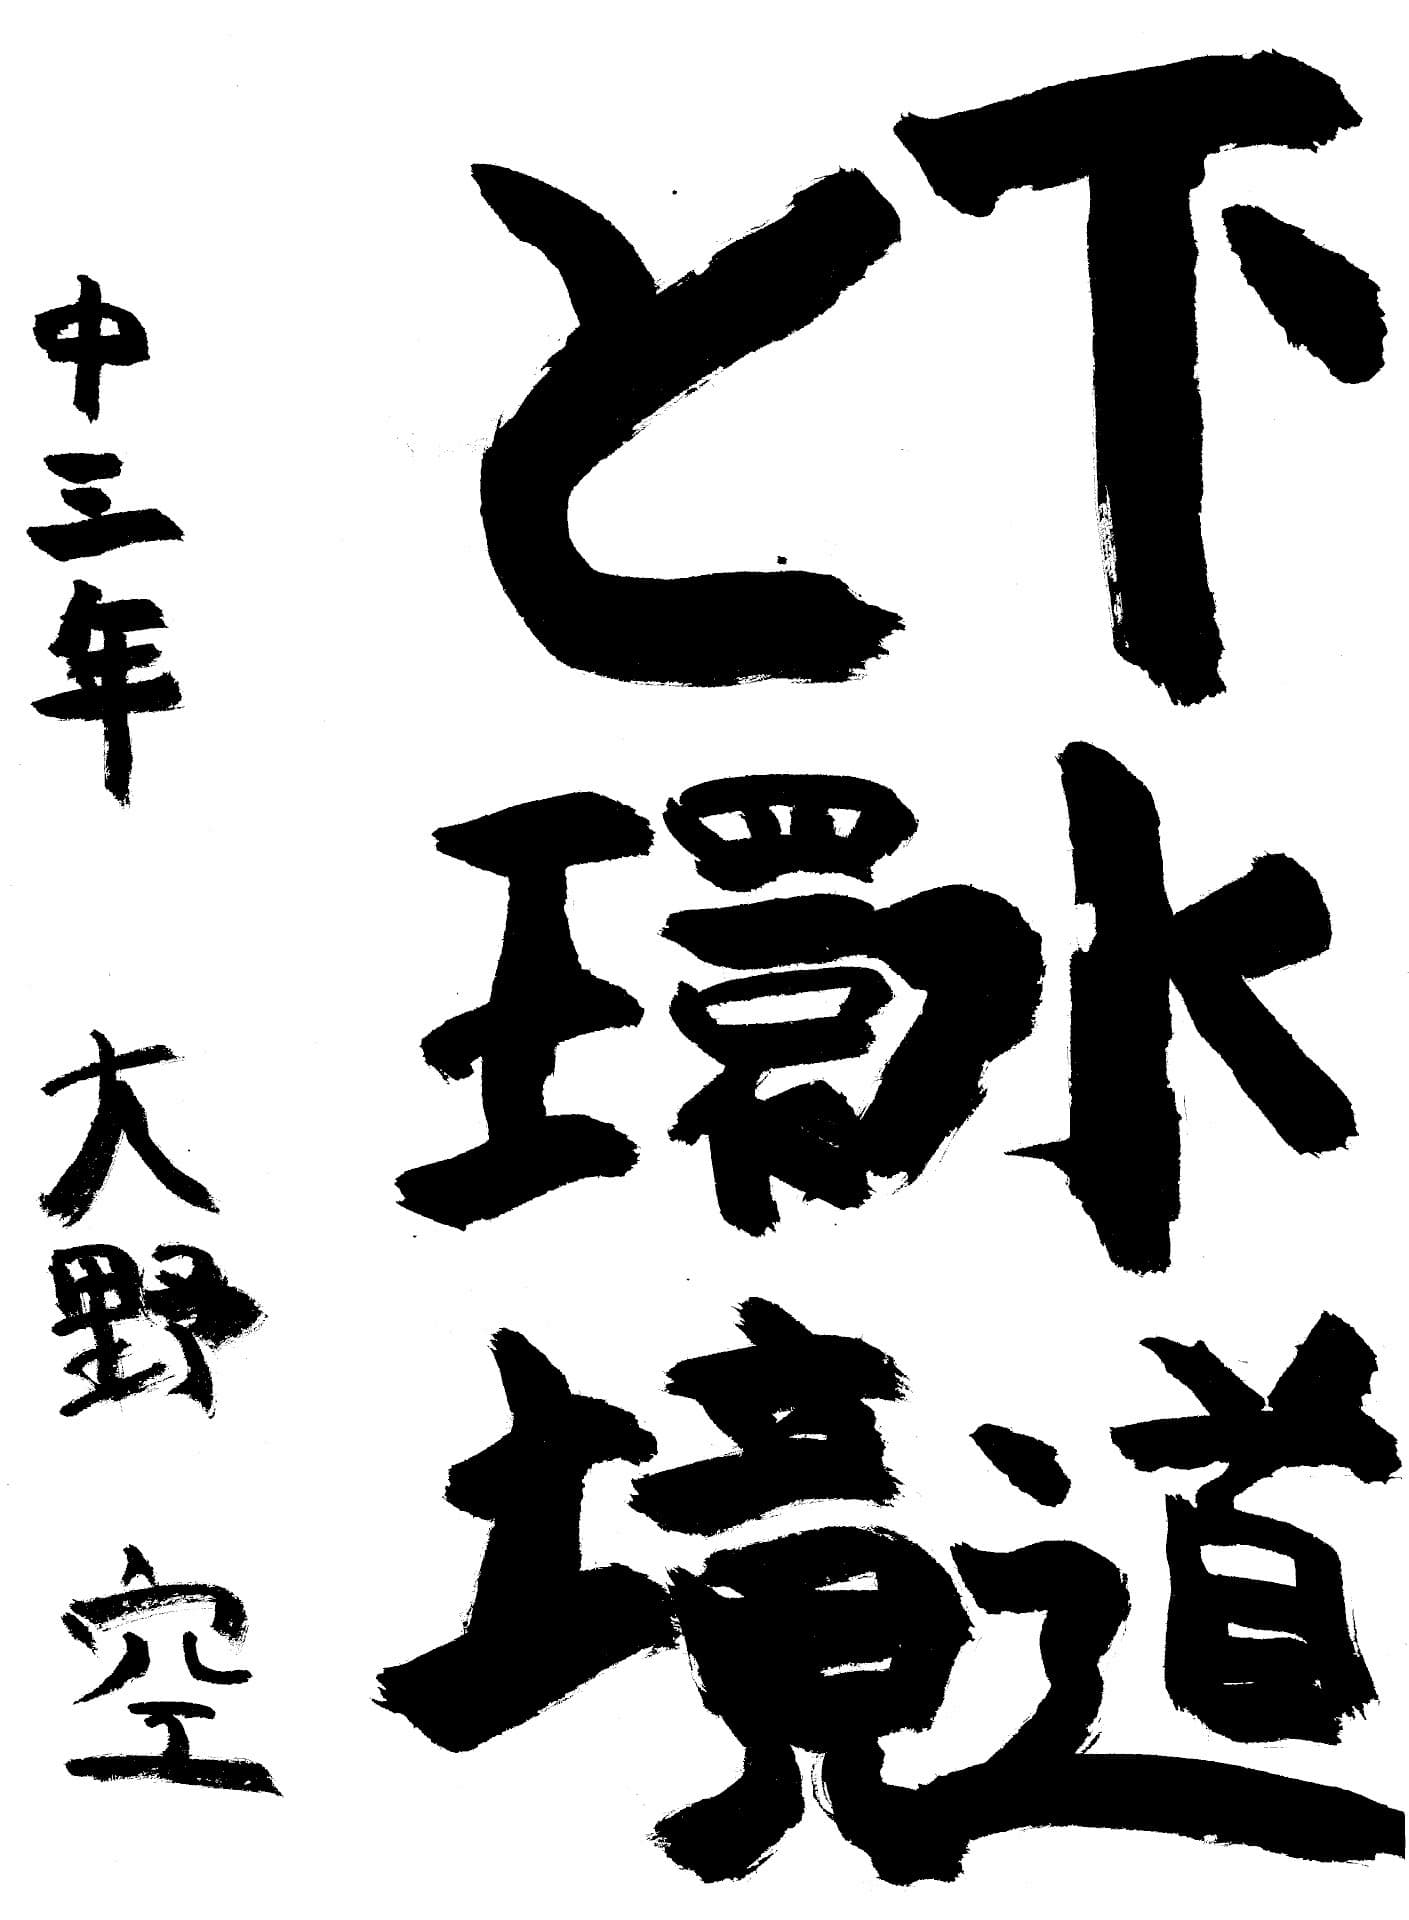 下水道
と環境
中三年 大野 空